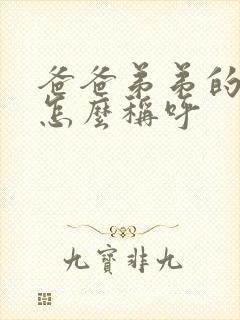 爸爸弟弟的
怎麼稱呼
九寶非九